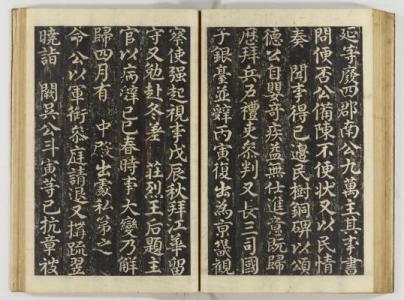 延等廢四郡南公九萬主其事書
問便否公備陳不便狀又以民情
奏 聞事得已邊民樹銅碑以頌
德公自嬰奇疾益無仕進意既歸
歷拜兵工禮吏參判又長三司國
子銀臺並辭丙寅復出為京畿觀
察使强起視事戊辰秋拜江華留
守又勉赴冬差 莊烈王后題主
官以病辭己巳春時事大變乃解
歸四月有 中殿出處私第之
命公以軍銜參庭請退又搆疏翌
曉詣 闕吳公斗寅等已抗章被